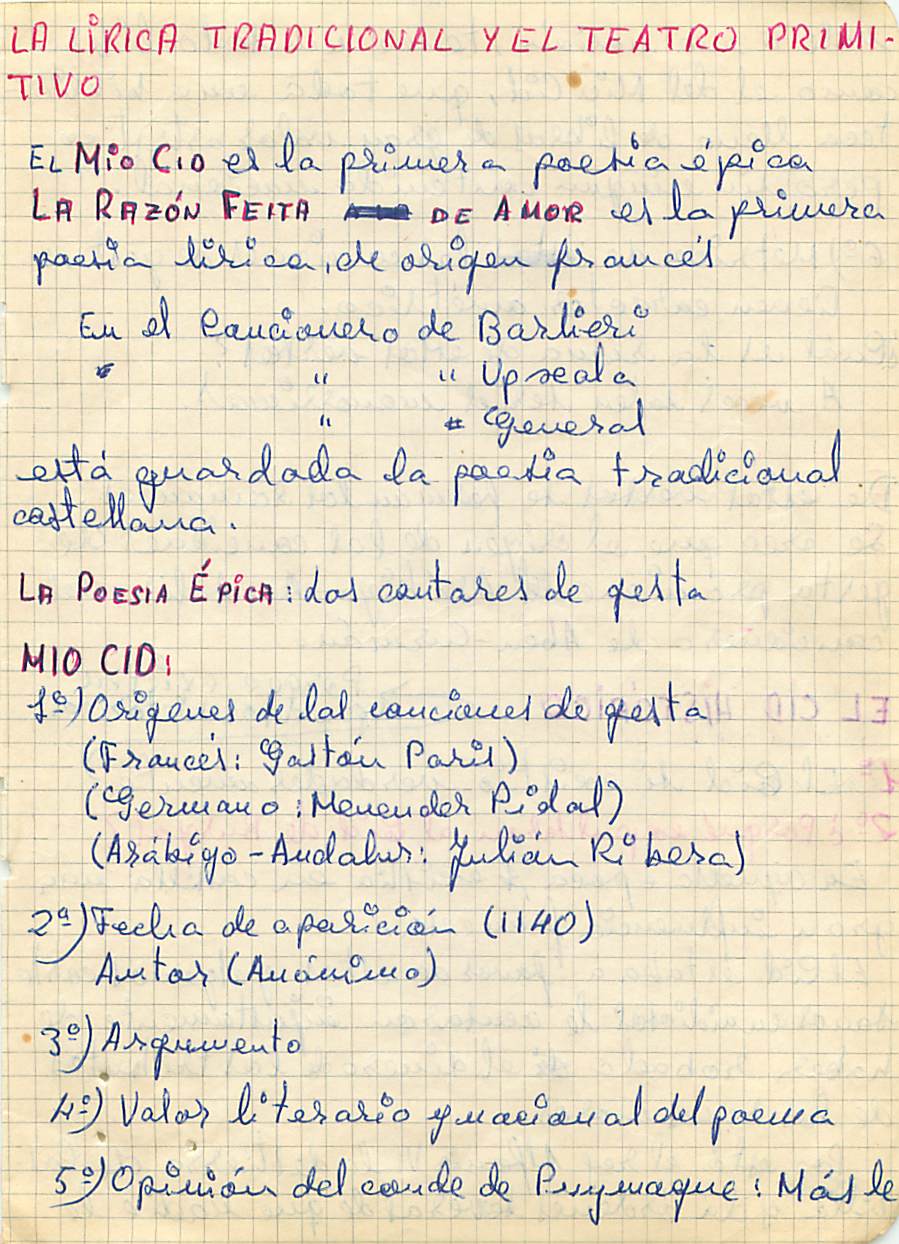 LA LÍRICA TRADICIONAL Y EL TEATRO PRIMI-
TIVO
EL MIO CID es la primera poesia épica
LA RAZÓN FEITA DE AMOR es la primera
poesia lírica, de origen francés
En el Cancionero de Barbieri
" " " Upseala
" " General
está guardada la poesia tradicional
castellana.
LA POESIA ÉPICA: Los cantares de gesta
MIO CID:
1º) Orígenes de las canciones de gesta
(Francés: Gastón Paris)
(Germano: Menender Pidal)
(Arábigo-Andalus: Julián Ribera)
2ª) Fecha de aparición (1140)
Autor (Anónimo)
3º) Argumento
4º) Valor literario y nacional del poema
5º) Opinión del conde de Puymague: Más le